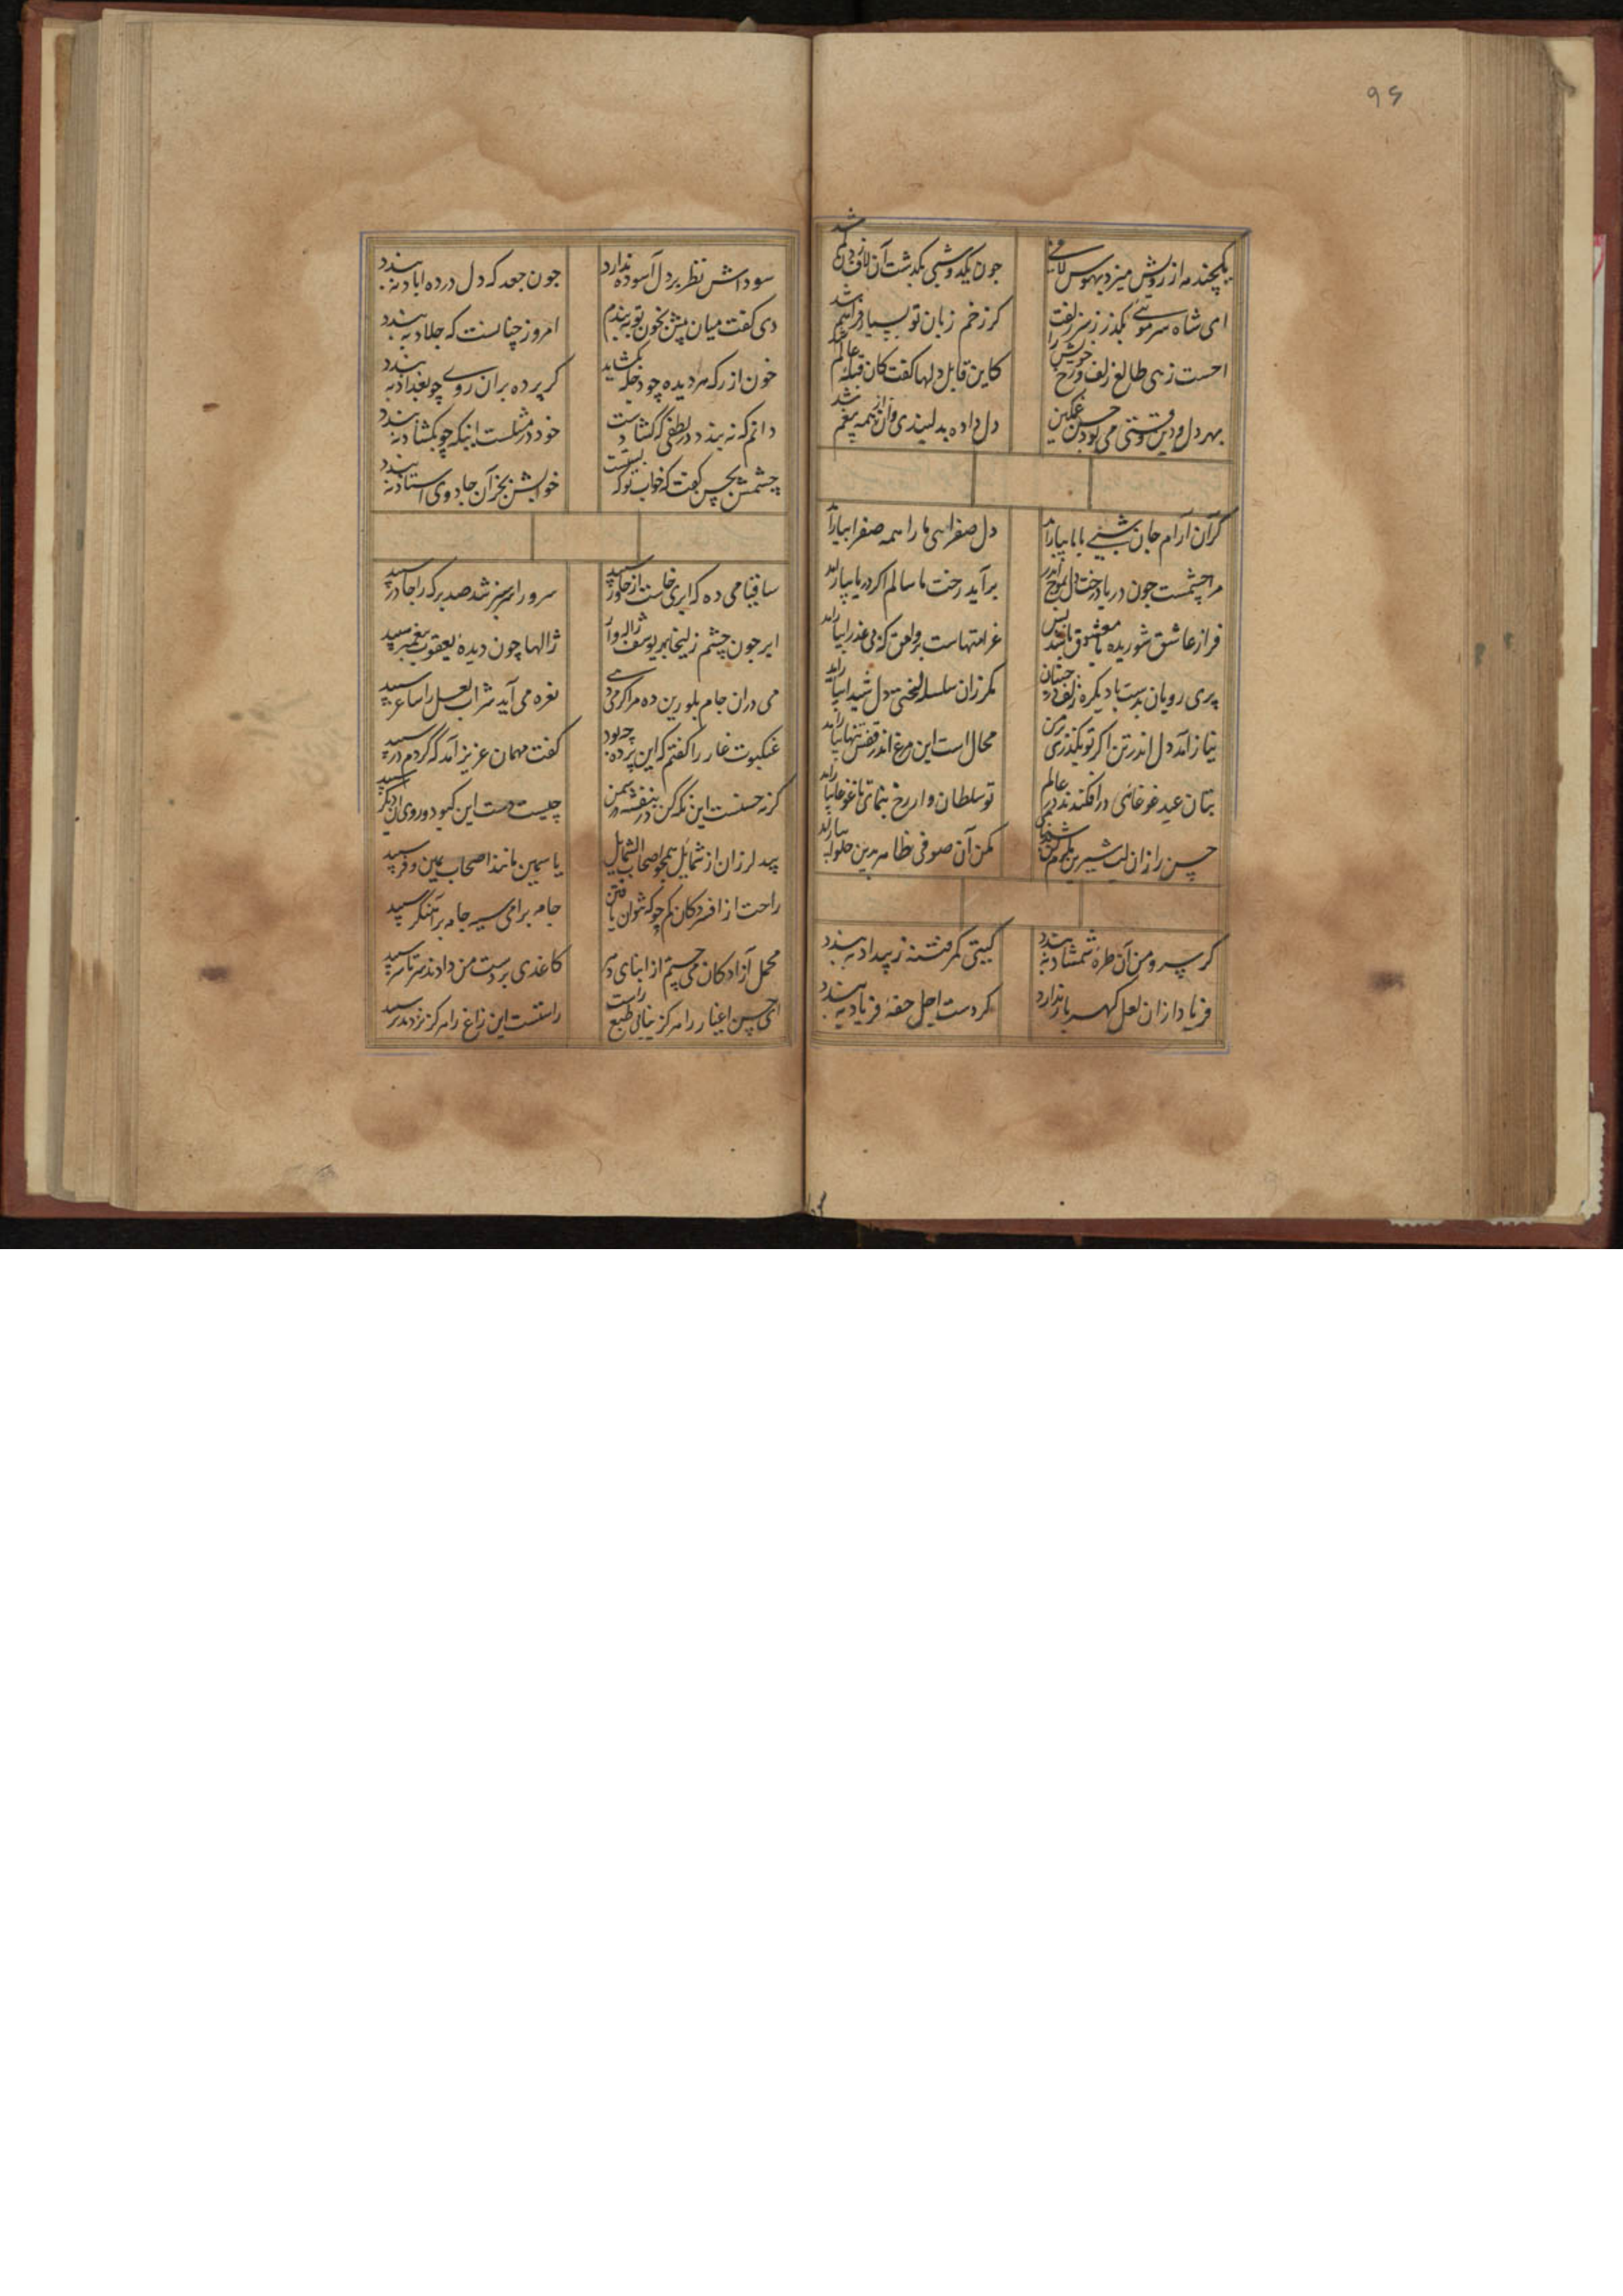 ۹۶
یکچند مه از رویش میزد بهوس لافی
چون یکدو شبی بگذشت آن لاف زدن کم شد
ای شاه سر موئی بگذر ز سر زلفت
کز زخم زبان تو بسیار فراهم شد
احسنت زهی طالع زلف و رخ خویش را
کاین قابل دلها گفت کان قبلهٔ عالم شد
بهر دل و دین وقتی می بود حسن غمگین
دل داده بدلبندی وان از همه بیغم شد
گر آن آرام جان شبی با ما بیاراید
دل صفرائی ما را همه صفرا بیاراید
مرا چشمست چون دریا درخت دل بموج اندر
برآید رخت ما سالم اگر دریا بیاراید
فراز عاشق شوریده با معشوق باشد بس
غرامتهاست بر وامق که بی عذرا بیاراید
پری رویان بدست باد یکره زلف در جنبان
مگر زان سلسله لختی دل شیدا بیاراید
نیاز آمد دل اندر تن اگر تو بگذری بر من
محال است این مرغ اندر قفس تنها بیاراید
بتان عید غوغائی درافکندند در عالم
تو سلطان وار رخ بنمای تا غوغا بیاراید
حسن را زان لب شیرین مکن
مکن آن صوفی ظاهر بدین حلوا بیاراید
گر سرو من آن طرهٔ شمشاد نه بندد
گیتی کمر فتنه ز بیداد نه بندد
فریاد از ان لعل گهربار ندارد
گر دست اجل حقهٔ فریاد نه بندد
سوداش نظر بر دل آسوده ندارد
چون جعد که دل در ده اباد نه بندد
دی گفت میان پیش بخون تو به بندم
امروز چنانست که جلاد نه بندد
خون از رگ هر دیده چو دجله بگشاید
گر پرده بران روی چو بغداد نه بندد
دانم که نه بندد در لطفی که گشادست
خود در مثلست اینکه چو بگشاد نه بندد
چشمش بحسن گفت که خواب تو که بستست
خوابش بجز آن جادوی استاد نه بندد
ساقیا می ده که ابری خاست از خاور سپید
سرو را سرسبز شد صد برگ را چادر سپید
ابر چون چشم زلیخا بهر یوسف ژاله وار
ژالها چون دیدهٔ یعقوب پیغمبر سپید
می دران جام بلورین ده مرا گر می دهی
نغره می آید شراب لعل را ساغر سپید
عنکبوت غار را گفتم که این پرده چه بود
گفت مهمان عزیز آمد که کردم در سپید
گر نه حسنست این نگه کن در بنفشه در سمن
چیست دست این کبود و روی آن دیگر سپید
بید لرزان از شمایل همچو اصحاب الشمایل
یاسمین مانند اصحاب یمین و فر سپید
راحت از افسردگان کم جو که نتوان یافتن
جامه برامی سیه جامه بر آهنگر سپید
محمل آزادگان می جستم از ابنای دهر
کاغذی بر دست من دادند سر تا سر سپید
ای حسن اغیار را هرگز نیابی طبع راست
راستست این زاغ را هرگز نزد پر سپید